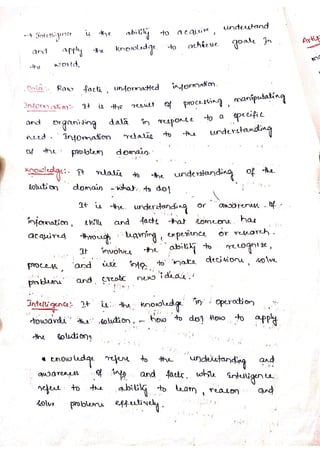 → Intelligence is the ability to acquire, understand
and apply the knowledge to achieve goals in
the world.
Data:- Raw facts, unformatted information.
Information:- It is the result of processing, manipulating
and organising data in response to a specific
need. Information relates to the understanding
of the problem domain.
Knowledge:- It relates to the understanding of the
solution domain - what to do?
It is the understanding or awareness of
information, skills and facts that someone has
acquired through learning, experience or research.
It involves the ability to recognise,
process and use info. to make decisions, solve
problems and create new ideas.
Intelligence:- It is the knowledge in operation
towards the solution. - how to do? How to apply
the solution?
* Knowledge refers to the understanding and
awareness of info and facts, while intelligence
refers to the ability to learn, reason and
solve problems effectively.